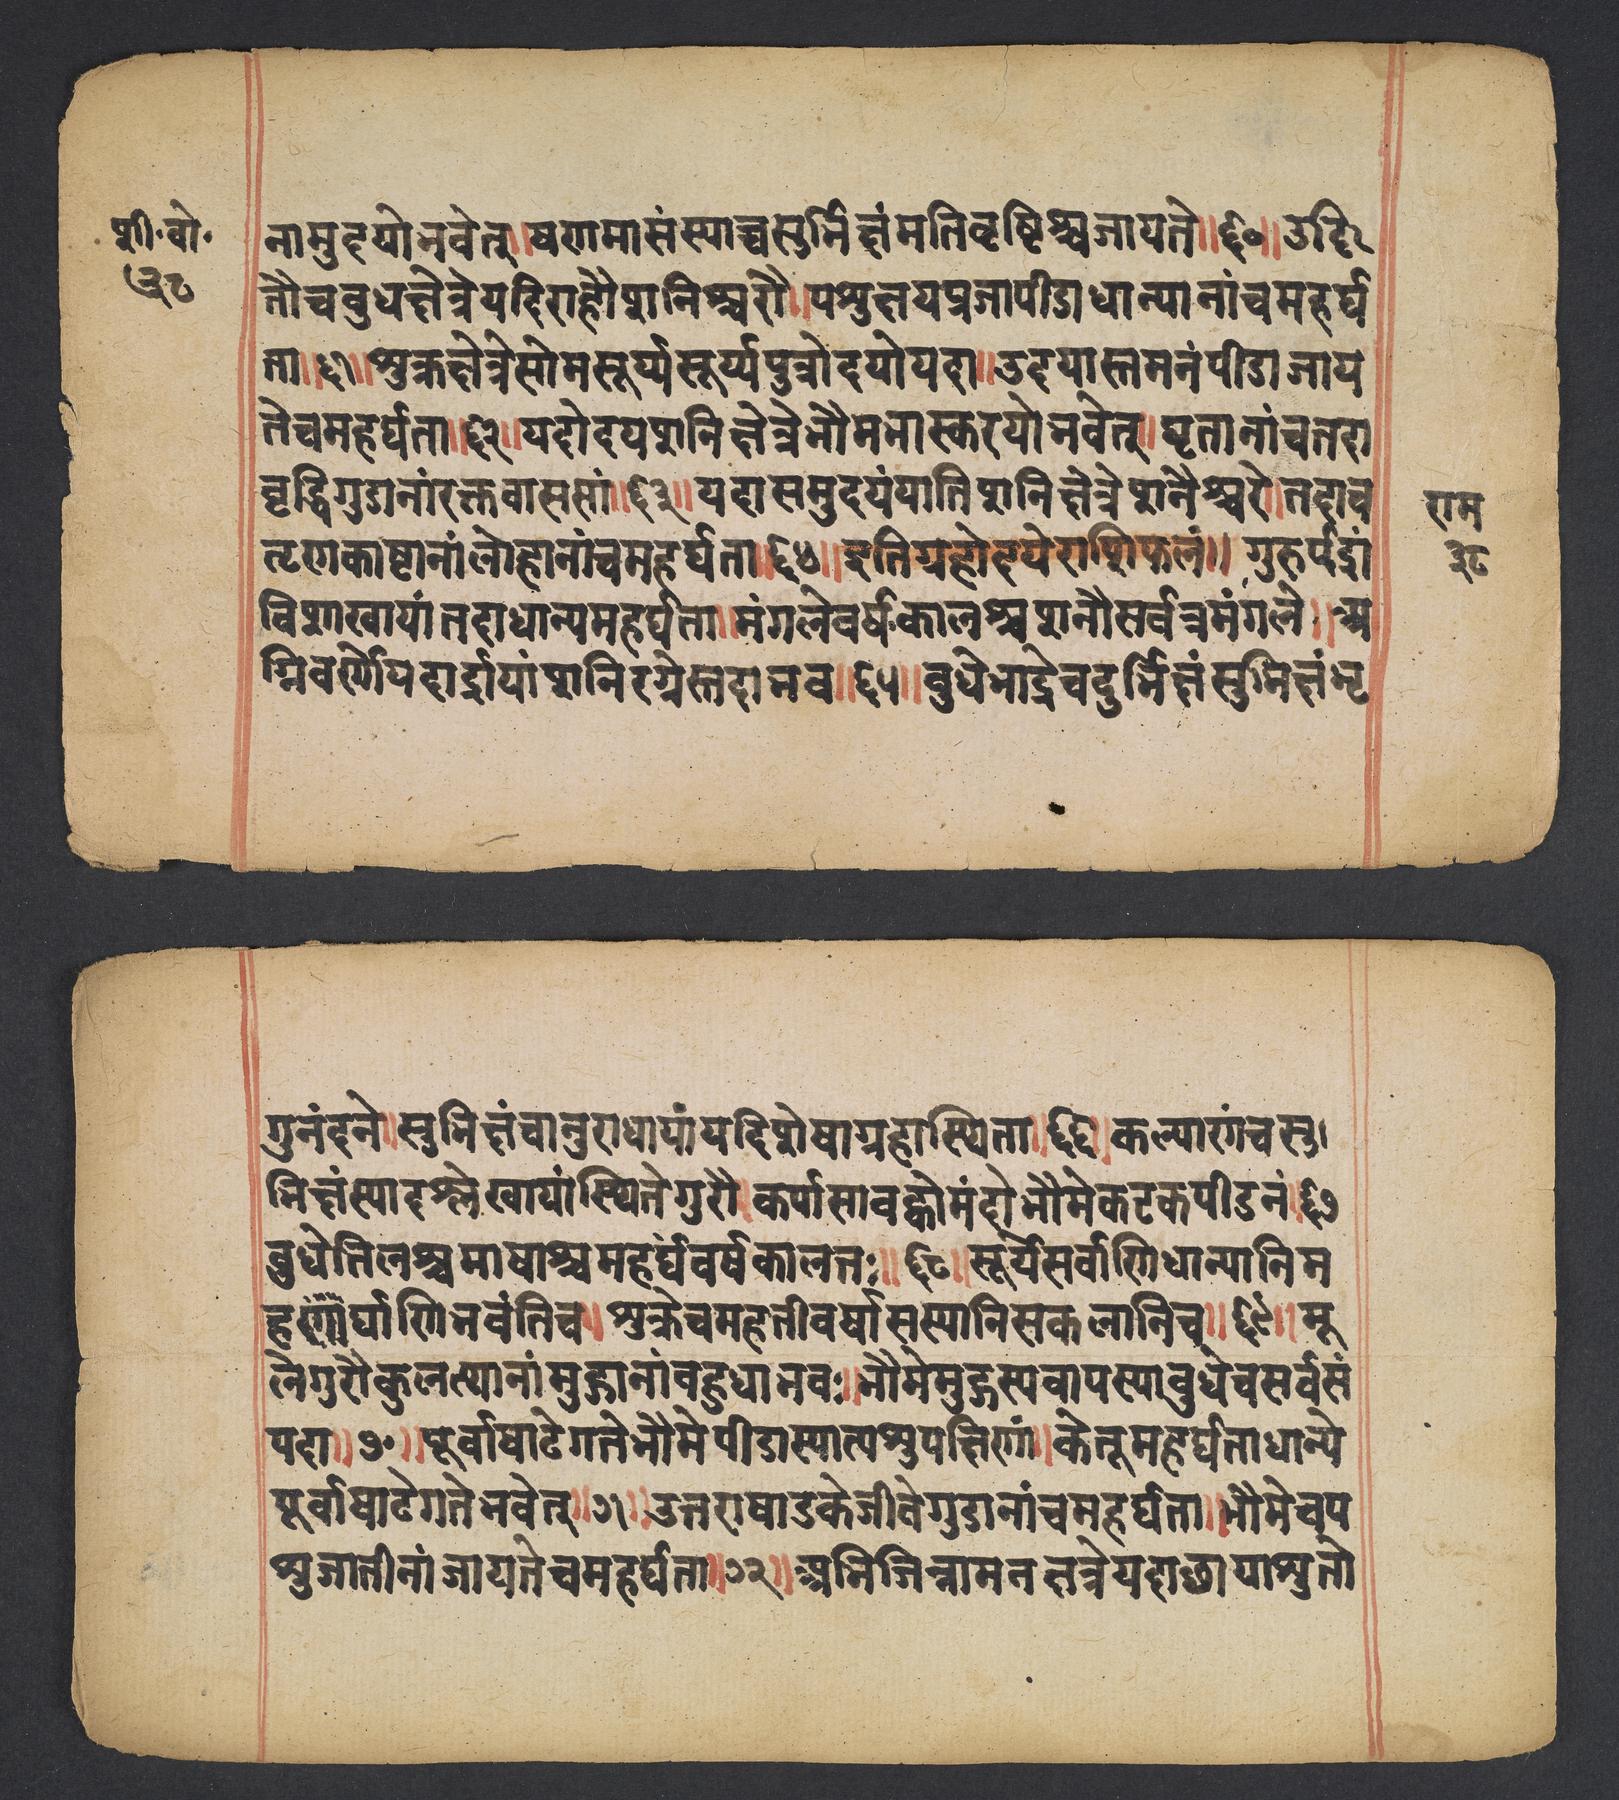 शी॰वो॰
३८
नामुदयोभवेत्॥षण्मासंस्याच्चसुर्भिक्षंमतिवृष्टिश्चजायते॥६०॥उदि
तौचबुधक्षेत्रेयदिराहौशनिश्चरौ॥पशुक्षयप्रजापीडाधान्यानांचमहर्घ
ता॥६१॥शुक्रक्षेत्रेसोमसूर्य्यसूर्य्यपुत्रोदयोयदा॥उदयास्तमनंपीडाजाय
तेचमहर्घता॥६२॥यदोदयशनिक्षेत्रेभौमभास्करयोभवेत्॥घृतानांचतदा
वृद्धिगुडानांरक्तवाससां॥६३॥यदासमुदयंयातिशनिक्षेत्रेशनैश्चरे॥तदाच
तृणकाष्टानांलोहानांचमहर्घता॥६४॥इतिग्रहोदयेराशिफलं॥गुरुर्यद्रां
विशाखायांतदाधान्यमहर्घता॥मंगलेवर्षकालश्चशनौसर्वत्रमंगले॥अ
ग्निवर्णोयदार्द्रायांशनिरग्नेस्तदाभव॥६५॥बुधेभाद्रेचदुर्भिक्षंसुभिक्षंभृ
राम
३८
गुनंदने॥सुभिक्षंचानुराधायांयदिशेषाग्रहास्थिता॥६६॥कल्याणंचसु
भिक्षंस्यादश्लेखायांस्थितेगुरौ॥कर्पासावह्वोमंदोभौमेकटकपीडनं॥६७
बुधेतिलश्चमाषाश्चमहर्घंवर्षकालतः॥६८॥सूर्येसर्वाणिधान्यानिम
हर्घाणिभवंतिच॥शुक्रेचमहतीवर्षासस्यानिसकलानिच॥६९॥मू
लेगुरौकुलत्थानांमुद्गानांवहुधाभवः॥भौमेमुद्गस्यवापस्याबुधेचसर्वसं
पदा॥७०॥पूर्वाषाढेगतेभौमेपीडास्यात्पशुपक्षिणां॥केतूमहर्घताधान्ये
पूर्वाषाढेगतेभवेत्॥७१॥उत्तराषाडकेजीवेगुडानांचमहर्घता॥भौमेचप
शुजातीनांजायतेचमहर्घता॥७२॥अभिजिन्नामनक्षत्रेयदाछायाशुतो